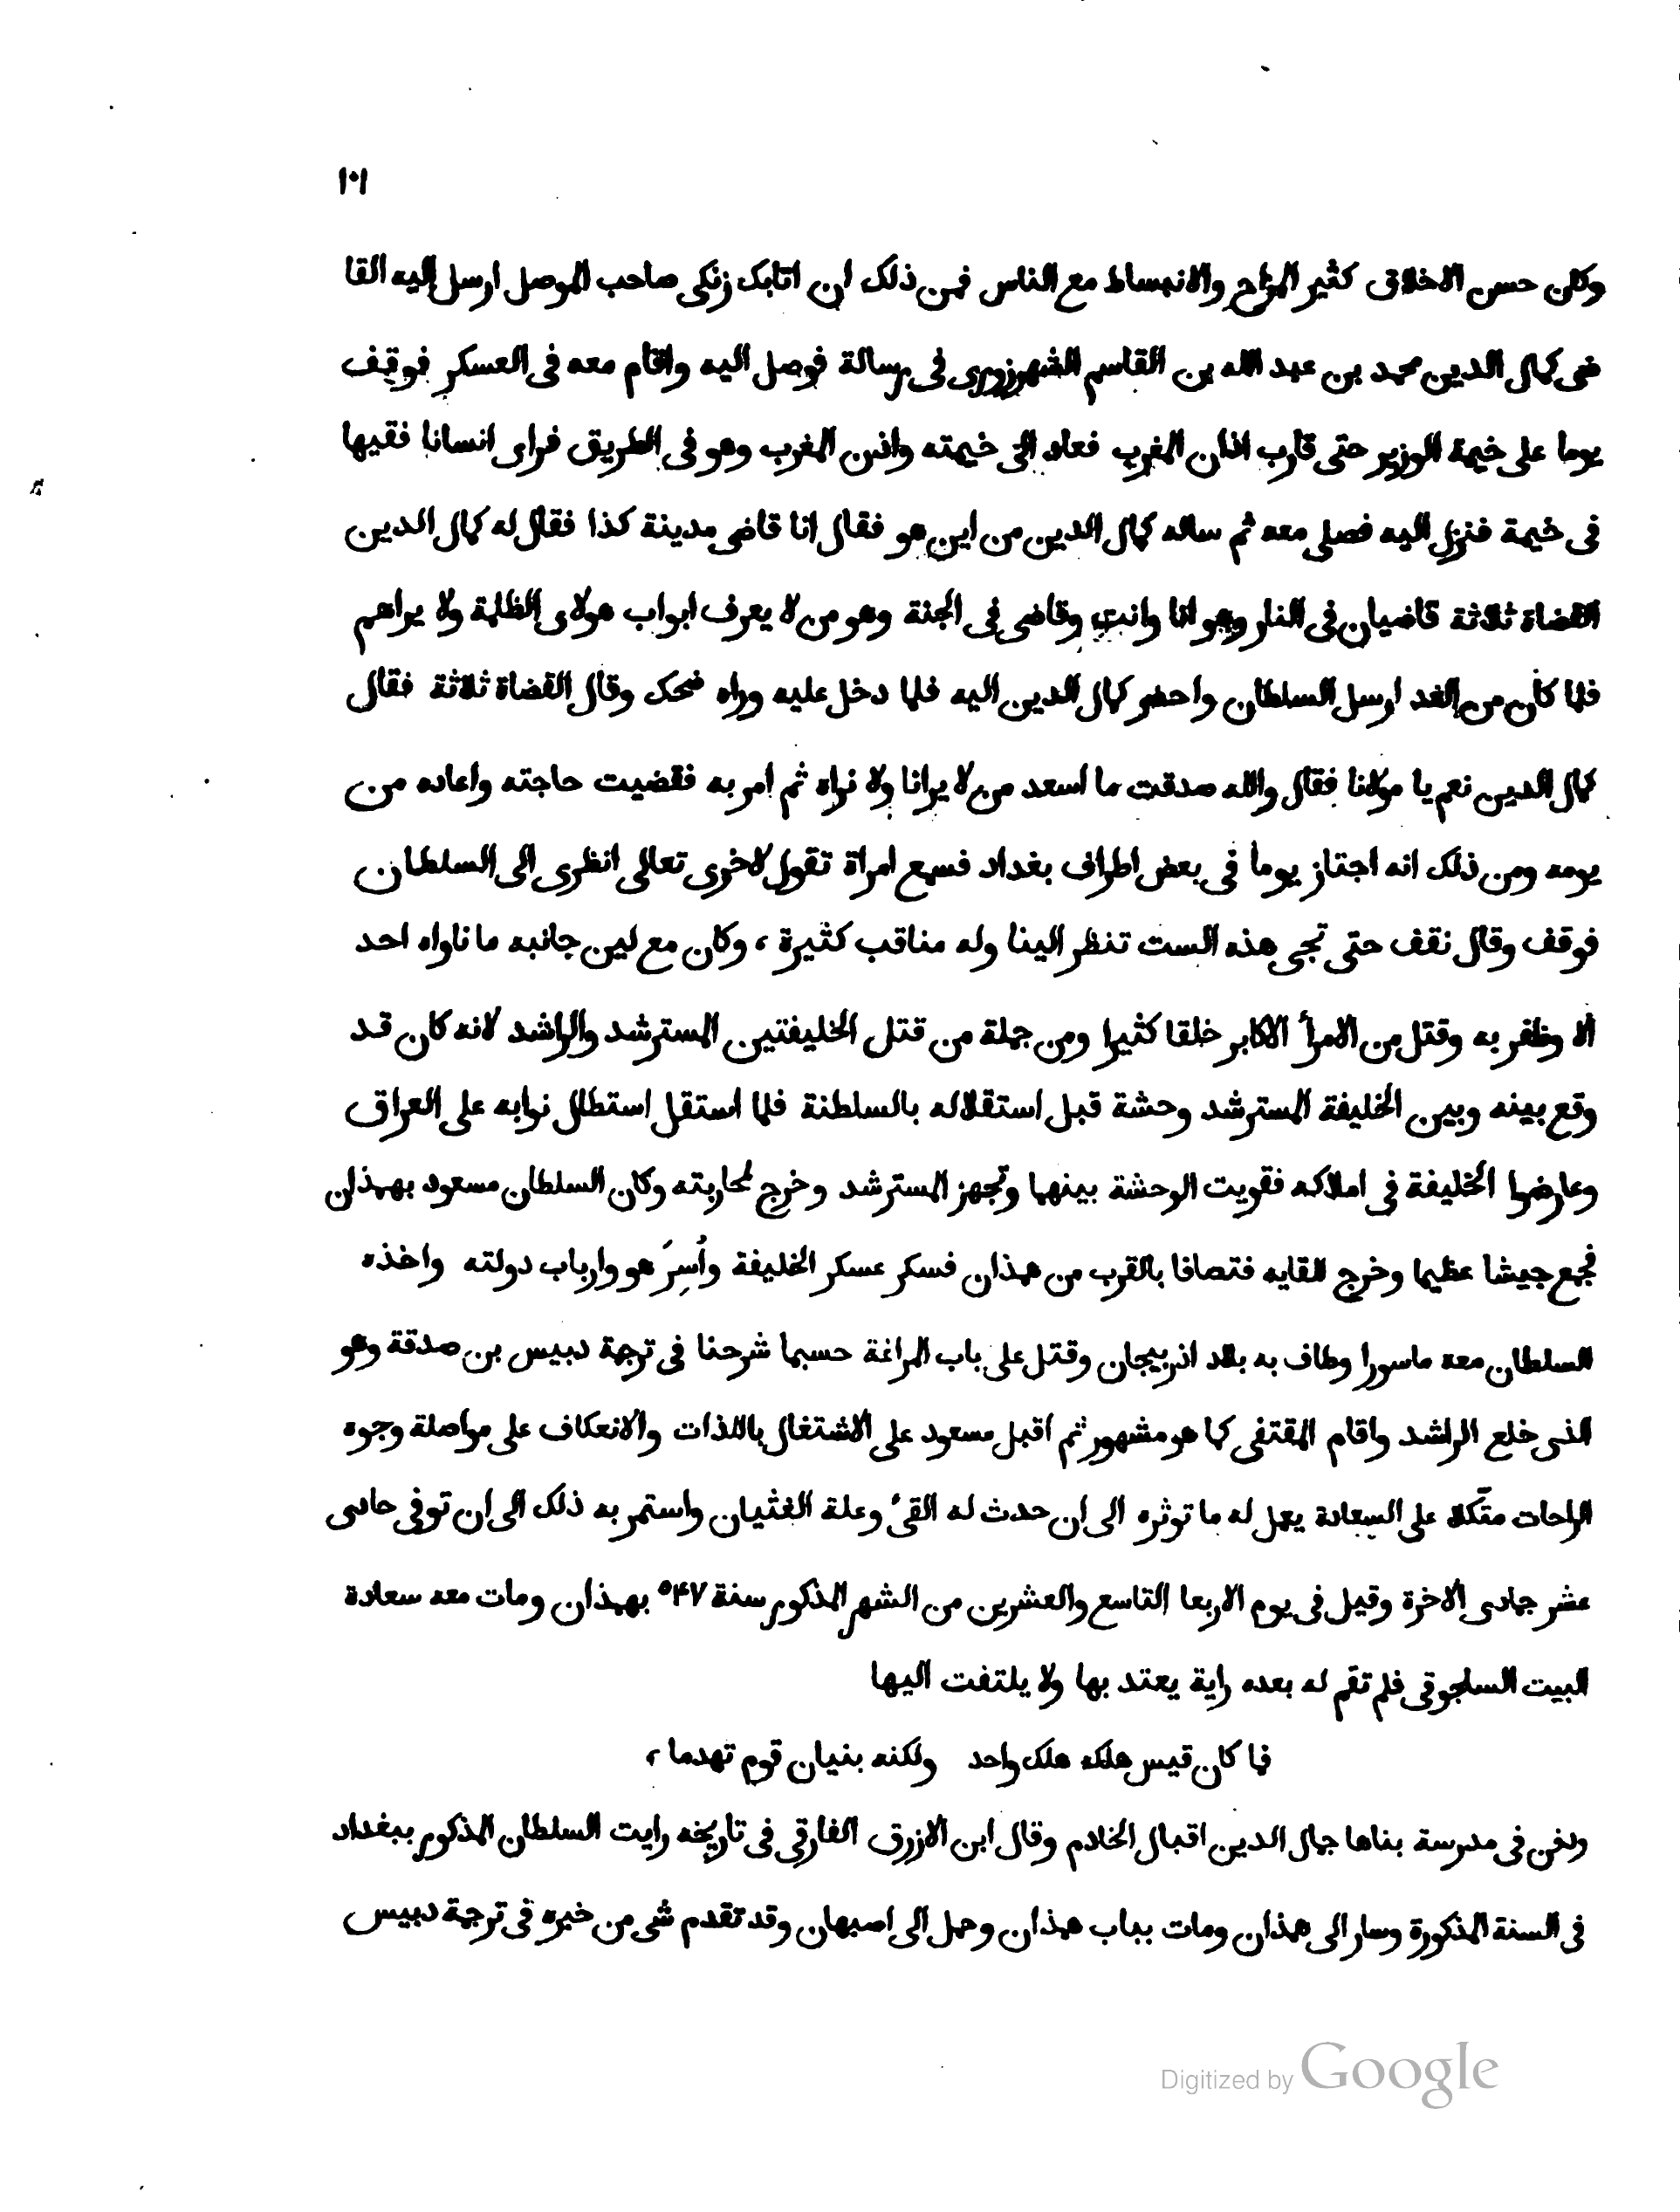 ١٠١
وكان حسن الاخلاق كثير المزاح والانبساط مع الناس فمن ذلك ان اتابك زنكى صاحب الموصل ارسل اليه القا
ضى كمال الدين محمد بن عبد الله بن القاسم الشهرزورى فى رسالة فوصل اليه واقام معه فى العسكر فوقف
يوما على خيمة الوزير حتى قارب اذان المغرب فعاد الى خيمته واذن المغرب وهو فى الطريق فراى انسانا فقيها
فى خيمة فنزل اليه فصلى معه ثم ساله كمال الدين من اين هو فقال انا قاضى مدينة كذا فقال له كمال الدين
القضاة ثلاثة قاضيان فى النار وهو انا وانت وقاضى فى الجنة وهو من لا يعرف ابواب هولاى الظلمة ولا يراهم
فلما كان من الغد ارسل السلطان واحضر كمال الدين اليه فلما دخل عليه وراه ضحك وقال القضاة ثلاثة فقال
كمال الدين نعم يا مولانا فقال والله صدقت ما اسعد من لا يرانا ولا نراه ثم امر به فقضيت حاجته واعاده من
يومه ومن ذلك انه اجتاز يوما فى بعض اطراف بغداد فسمع امراة تقول لاخرى تعالى انظرى الى السلطان
فوقف وقال نقف حتى تجى هذه الست تنظر الينا وله مناقب كثيرة ، وكان مع لين جانبه ما ناواه احد
الا وظفر به وقتل من الامرأ الاكابر خلقا كثيرا ومن جملة من قتل الخليفتين المسترشد والراشد لانه كان قد
وقع بينه وبين الخليفة المسترشد وحشة قبل استقلاله بالسلطنة فلما استقل استطال نوابه على العراق
وعارضوا الخليفة فى املاكه فقويت الوحشة بينهما وتجهز المسترشد وخرج لمحاربته وكان السلطان مسعود بهمذان
فجمع جيشا عظيما وخرج للقايه فتصافا بالقرب من همذان فسكر عسكر الخليفة وأُسِرَ هو وارباب دولته واخذه
السلطان معه ماسورا وطاف به بلاد اذربيجان وقتل على باب المراغة حسبما شرحنا فى ترجمة دبيس بن صدقة وهو
الذى خلع الراشد واقام المقتفى كما هو مشهور ثم اقبل مسعود على الاشتغال باللذات والانعكاف على مواصلة وجوه
الراحات متّكلا على السعادة يعمل له ما توثره الى ان حدث له القىٔ وعلة الغثيان واستمر به ذلك الى ان توفى حادى
عشر جمادى الاخرة وقيل فى يوم الاربعا التاسع والعشرين من الشهر المذكور سنة ٥۴٧ بهمذان ومات معه سعادة
البيت السلجوقى فلم تقم له بعده راية يعتد بها ولا يلتفت اليها
فما كان قيس هلكه هلك واحد ولكنه بنيان قوم تهدما ،
ودفن فى مدرسة بناها جمال الدين اقبال الخادم وقال ابن الازرق الفارقى فى تاريخه رايت السلطان المذكور ببغداد
فى السنة المذكورة وسار الى همذان ومات بباب همذان وحمل الى اصبهان وقد تقدم شى من خبره فى ترجمة دبيس
Digitized by Google